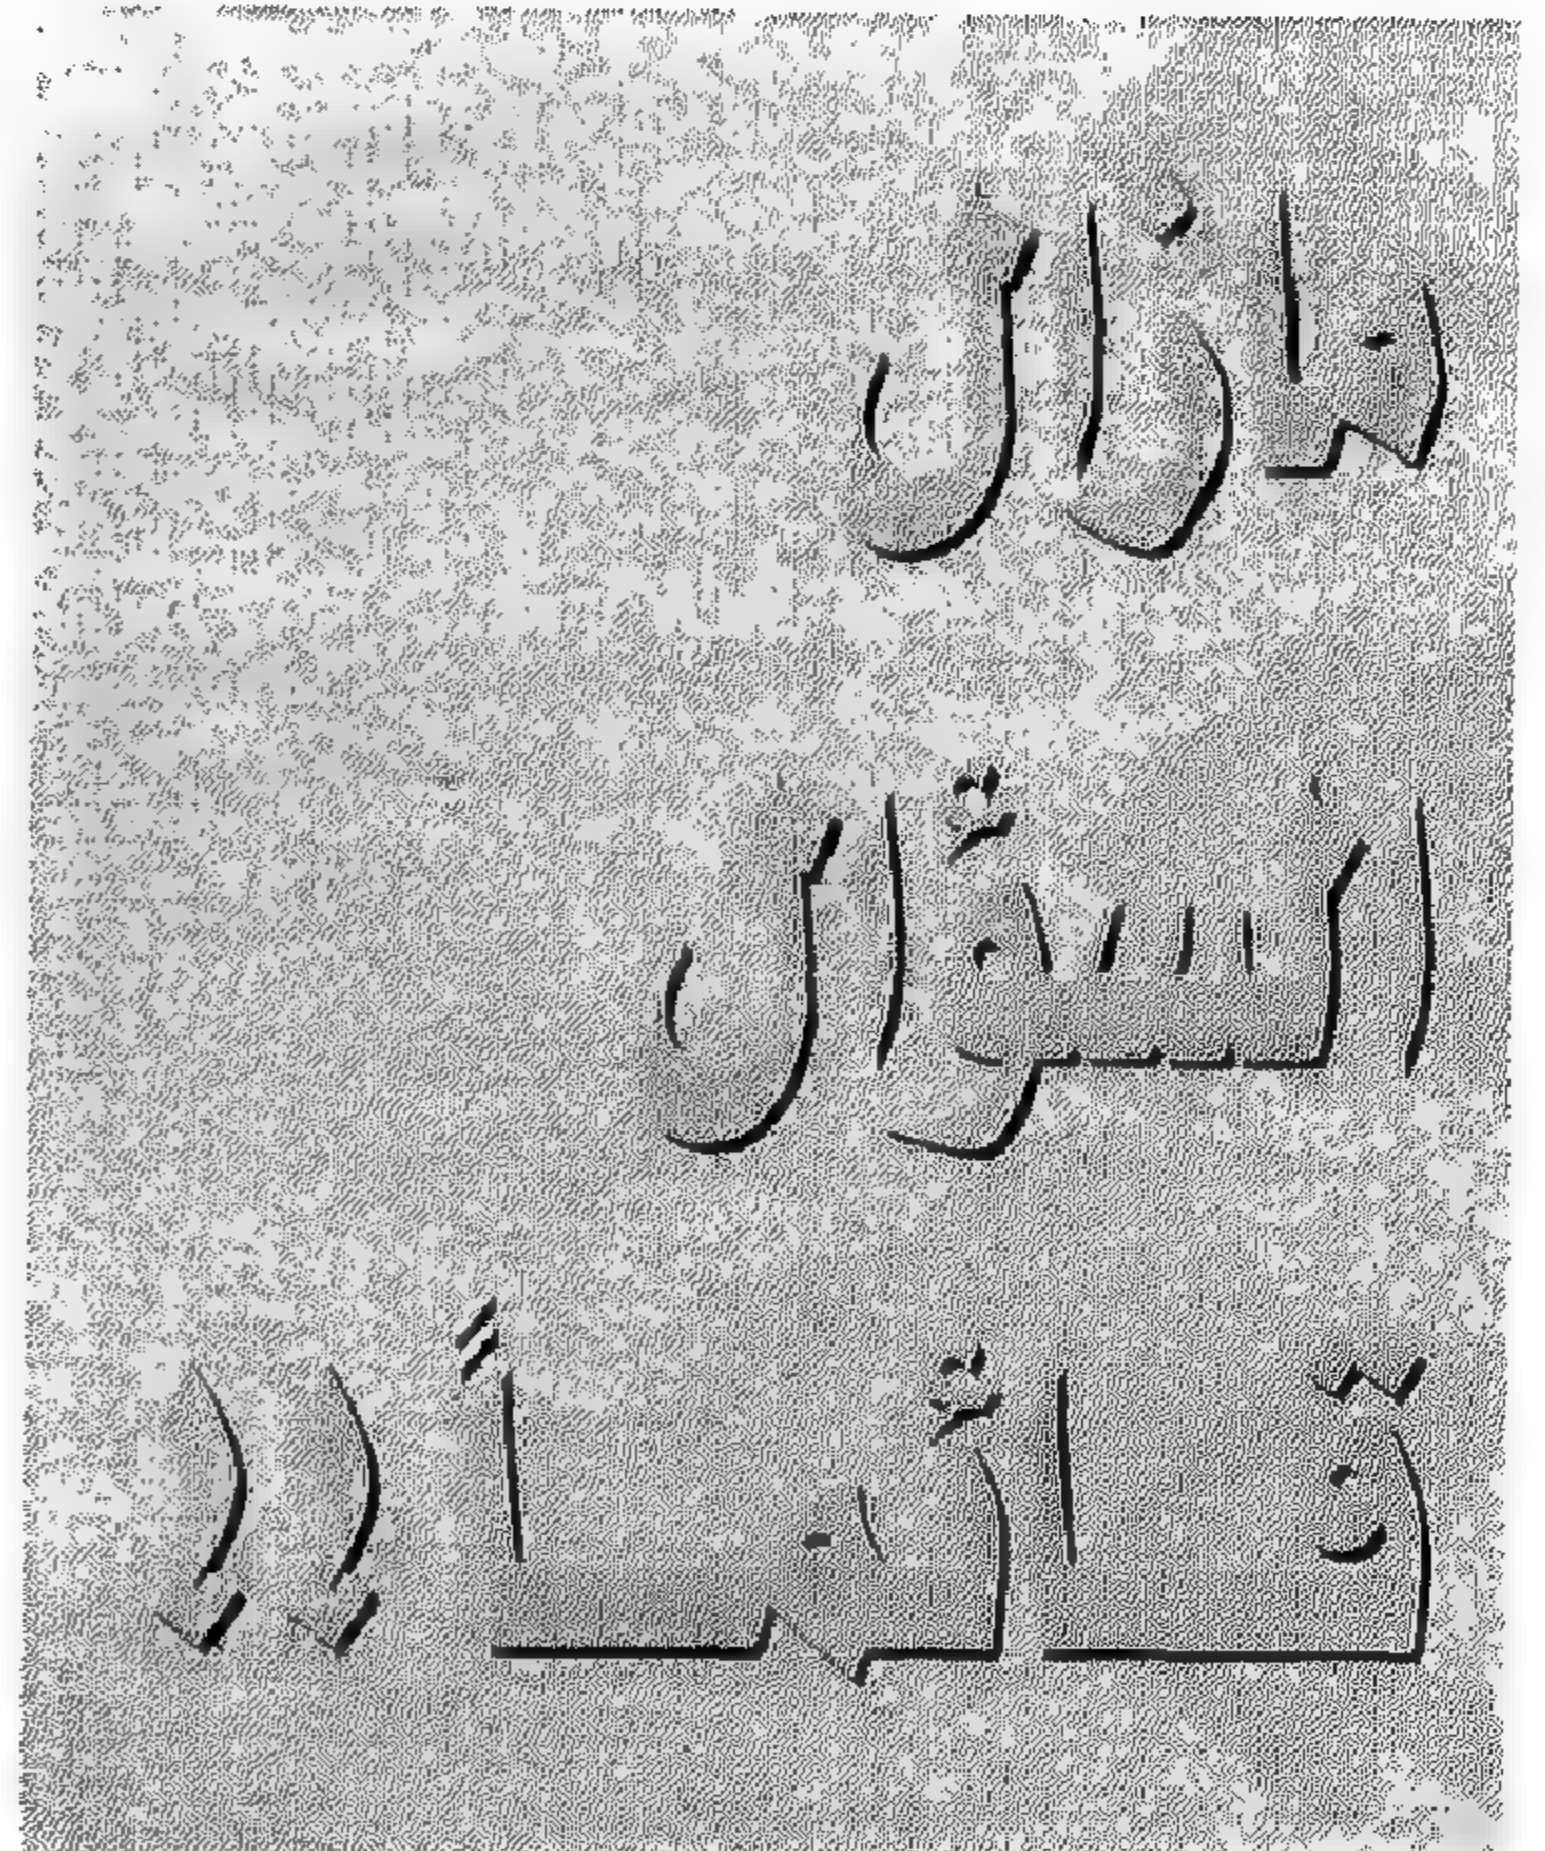 ما زال
السؤال
قائمًا !!